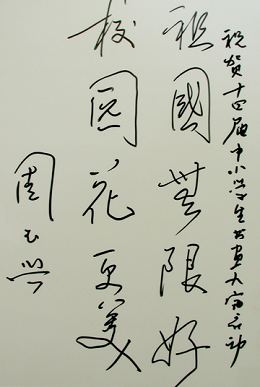 祝贺十四届中小学生书画大赛
祖國無限好
校园花更美
周